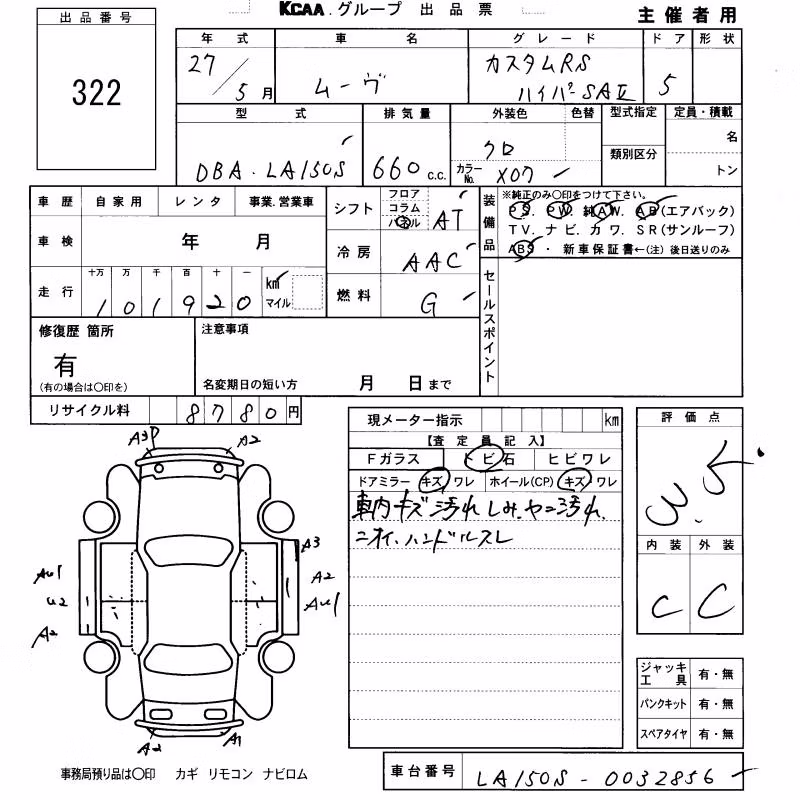 KCAA.グループ 出品票
主催者用
出品番号
322
年式 車名 グレード ドア 形状
27/5月 ムーヴ カスタムRS ハイパーSAⅡ 5
型式 排気量 外装色 色替 型式指定 定員・積載
DBA-LA150S 660c.c. クロ 名
カラーNo. X07 類別区分 トン
車歴 自家用 レンタ 事業.営業車
シフト フロア コラム パネル AT
装備品 ※純正のみ〇印をつけて下さい。
PS. PW. 純AW. AB(エアバック)
TV. ナビ. カワ. SR(サンルーフ)
ABS・新車保証書←(注)後日送りのみ
車検 年 月
冷房 AAC
走行 十万 万 千 百 十 一
101920 km マイル
燃料 G
セールスポイント
修復歴 箇所
有
(有の場合は〇印を)
注意事項
名変期日の短い方 月 日まで
リサイクル料 8780円
現メーター指示 km
評価点
3.5
【査定員記入】
Fガラス トビ石 ヒビワレ
ドアミラー キズ・ワレ ホイール(CP) キズ・ワレ
車内キズ汚れ しみ.ヤニ汚れ.
ニオイ.ハンドルスレ
内装 外装
C C
A3P A2
A3
AU1 A2
U2 AU1
A2
A2 A1
ジャッキ工具 有・無
パンクキット 有・無
スペアタイヤ 有・無
事務局預り品は〇印 カギ リモコン ナビロム
車台番号 LA150S-0032856